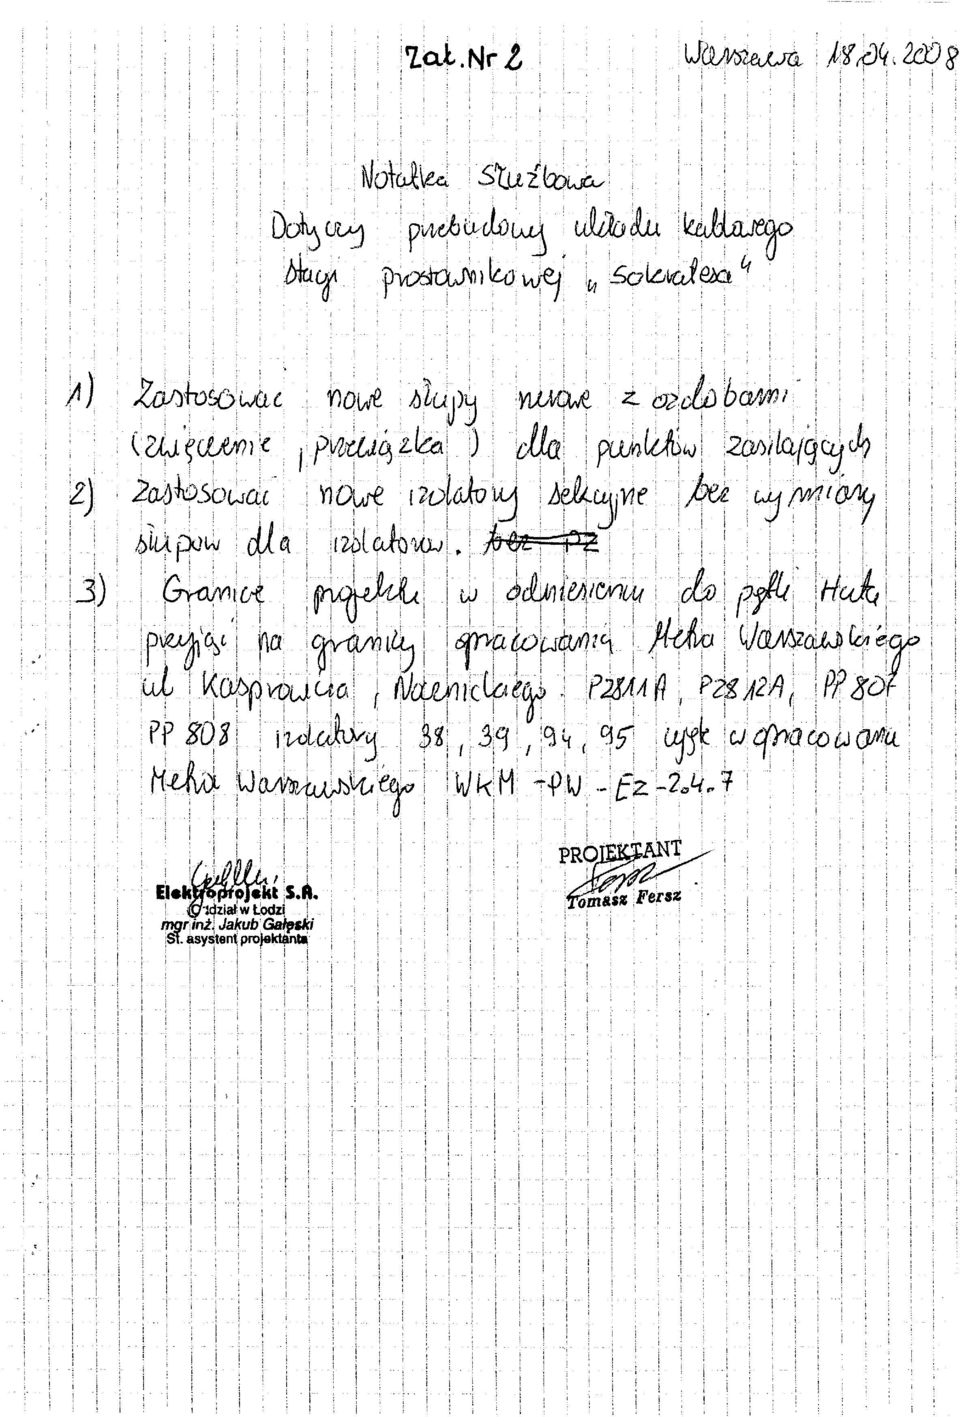 Zał. Nr 2 Warszawa 18.04.2008
Notatka Służbowa
Dotyczy przebudowy układu kablowego
stacji prostownikowej „Sokratesa"
1) Zastosować nowe słupy rurowe z ozdobami
(zwięczenie, przewiązka) dla punktów zasilających
2) Zastosować nowe izolatory sekcyjne bez wymiany
słupów dla izolatorów. bez pz
3) Granice projektu w odniesieniu do pętli Huta
przyjąć na granicy opracowania Metra Warszawskiego
ul Kasprowicza, Nocznickiego. P2811A, P2812A, PP 807
PP 808 izolatory 38, 39, 94, 95 wg w opracowaniu
Metra Warszawskiego WKM -PW - EZ -2.4.7
PROJEKTANT
Tomasz Fersz
Elektroprojekt S.A.
Oddział w Łodzi
mgr inż. Jakub Gałęski
St. asystent projektanta